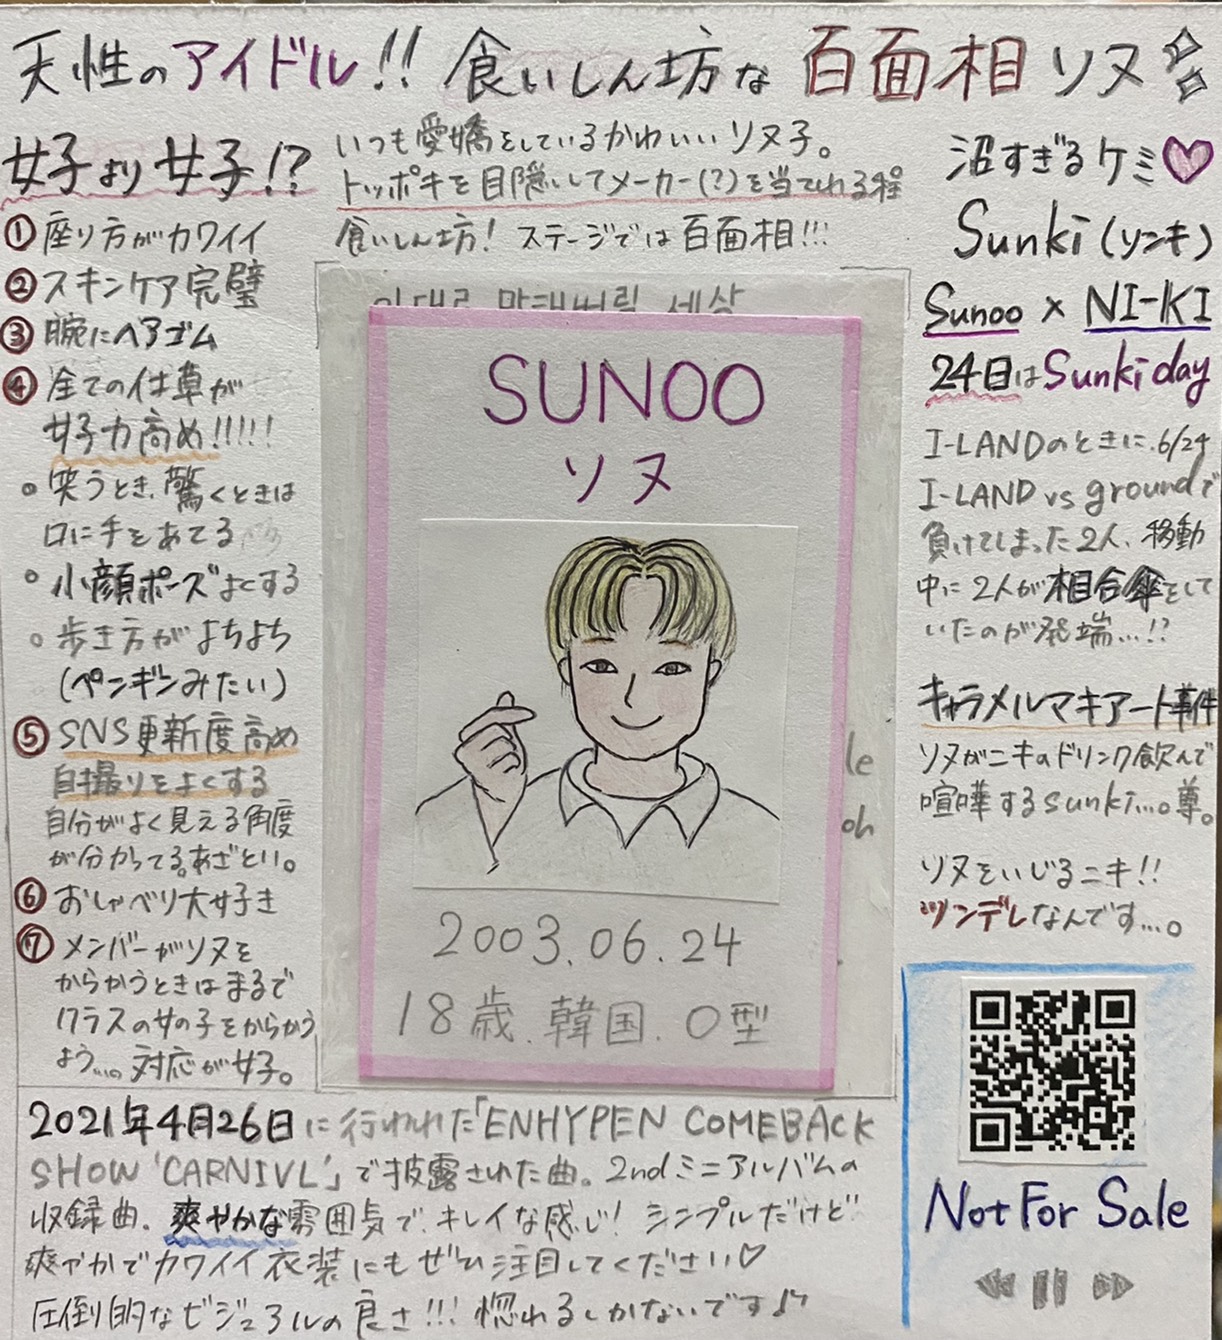 天性のアイドル!! 食いしん坊な百面相ソヌ
女子より女子!?
①座り方がカワイイ
②スキンケア完璧
③腕にヘアゴム
④全ての仕草が
女子力高め!!!!!
。笑うとき、驚くときは
口に手をあてる
。小顔ポーズよくする
。歩き方がよちよち
(ペンギンみたい)
⑤SNS更新度高め
自撮りをよくする
自分がよく見える角度
が分かってる。あざとい。
⑥おしゃべり大好き
⑦メンバーがソヌを
からかうときはまるで
クラスの女の子をからかう
よう...。対応が女子。
いつも愛嬌をしているかわいいソヌ子。
トッポキを目隠ししてメーカー(?)を当てれる程
食いしん坊! ステージでは百面相!!!
세상
SUNOO
ソヌ
le
oh
2003.06.24
18歳.韓国.O型
沼すぎるケミ♡
Sunki(ソンキ)
Sunoo × NI-KI
24日はSunki day
I-LANDのときに.6/24
I-LAND vs groundで
負けてしまった2人、移動
中に2人が相合傘をして
いたのが発端...!?
キャラメルマキアート事件
ソヌがニキのドリンク飲んで
喧嘩するsunki...。尊。
ソヌをいじるニキ!!
ツンデレなんです...。
Not For Sale
2021年4月26日に行われた「ENHYPEN COMEBACK
SHOW 'CARNIVL'」で披露された曲。2ndミニアルバムの
収録曲。爽やかな雰囲気で、キレイな感じ! シンプルだけど
爽やかでカワイイ衣装にもぜひ注目してください♡
圧倒的なビジュアルの良さ!!! 惚れるしかないです♪